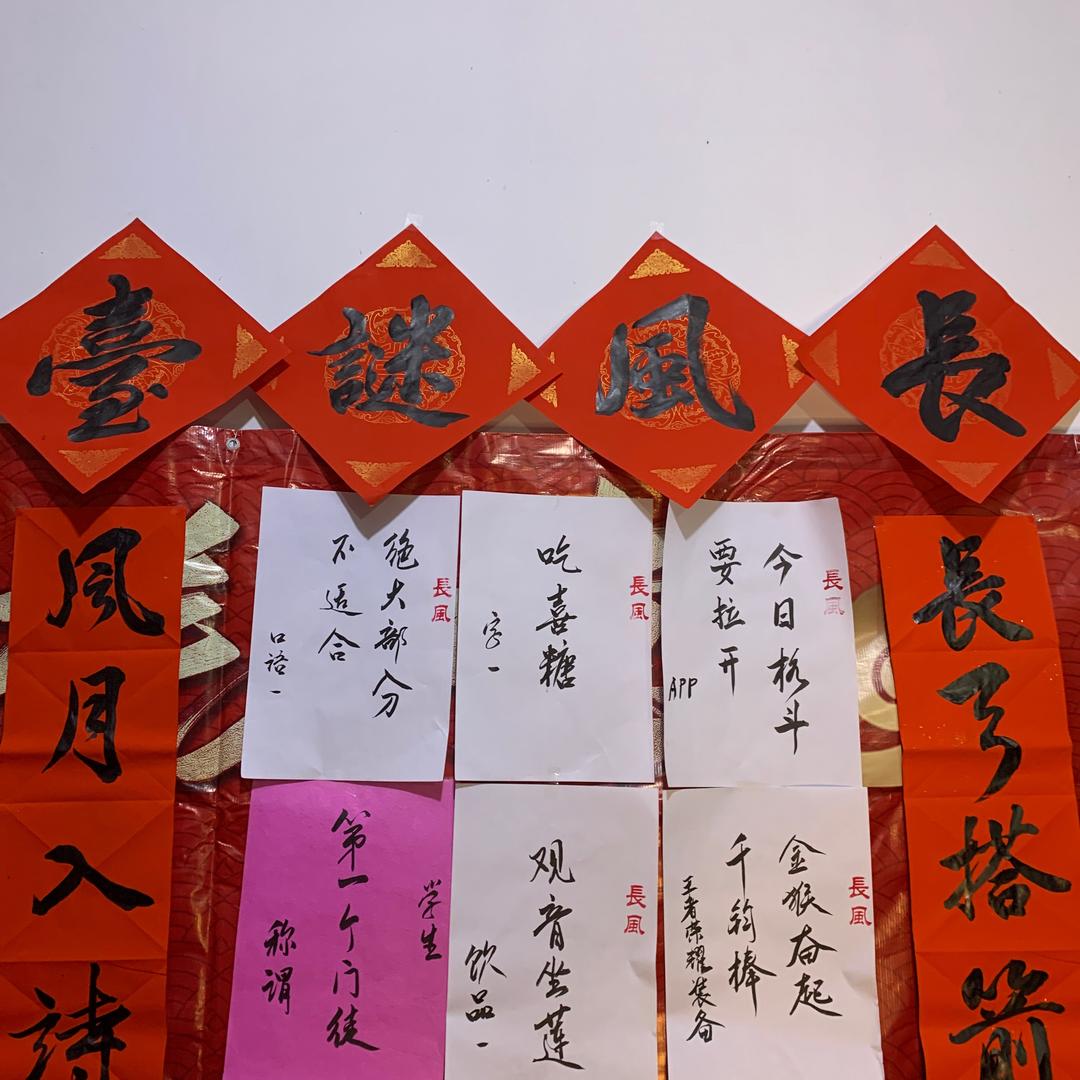 長風謎臺
長弓搭箭
長風
今日格斗
要拉开
APP
長風
吃喜糖
字一
長風
绝大部分
不适合
口语一
長風
金猴奋起
千钧棒
王者荣耀装备
長風
观音坐莲
饮品一
学生
第一个门徒
称谓
風月入詩